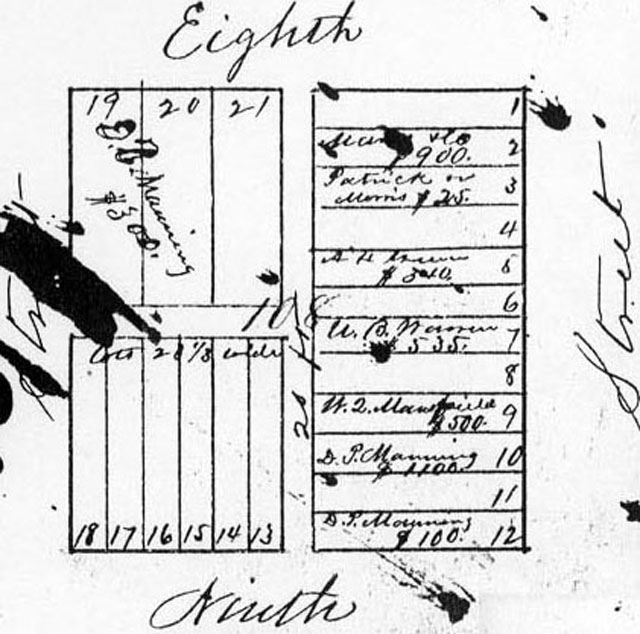 Eighth
19 20 21
D. P. Manning
$300.
1
& Co 2
$900.
Patrick or 3
Morris $25.
4
A H Brown 5
$
6
108
U. B. Warren 7
$535.
8
W. Q. Mansfield 9
$500.
D. P. Manning 10
$1100.
11
D. P. Manning 12
$100.
Lots 20 1/3 wide
20
18 17 16 15 14 13
Ninth
Street